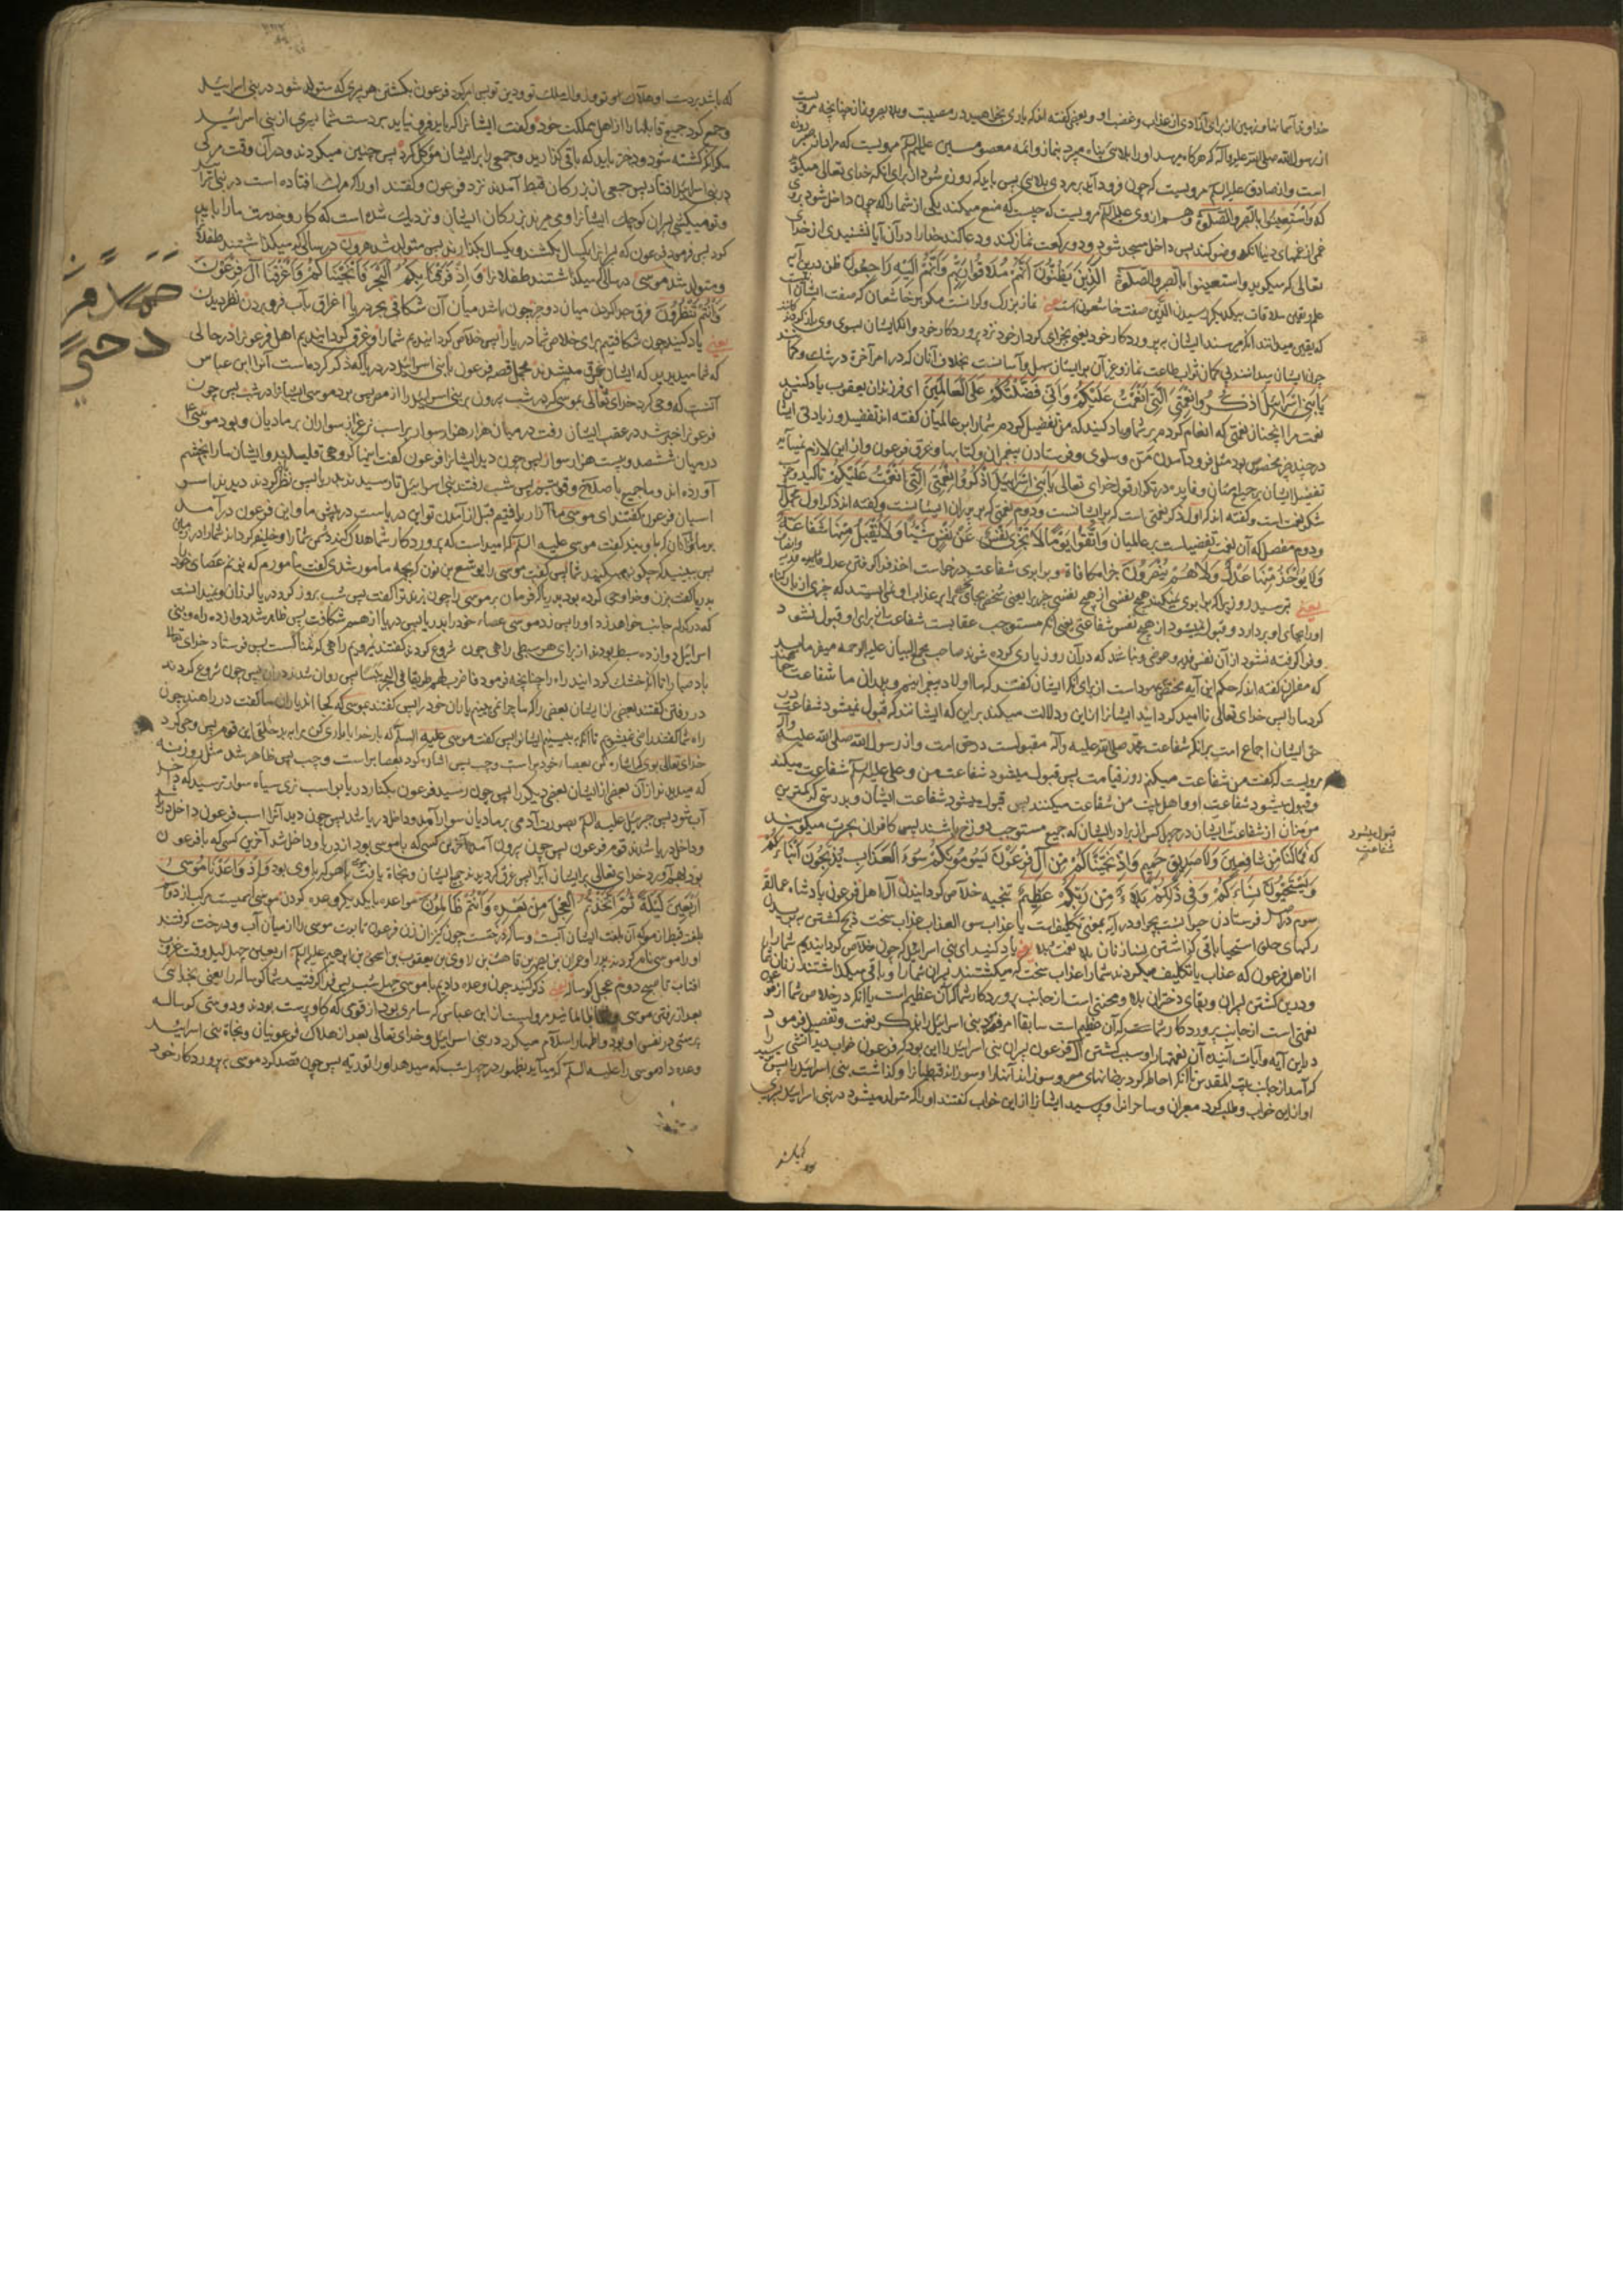 خداوند آسمانها و زمین از برای آزادی از عذاب و غضب او و بعضی گفته اند که یاری بخواهید در مصیبت و بلا بصبر و نماز چنانچه مرویست
از رسول الله صلی الله علیه وآله که هرگاه میرسد او را بلائی پناه میبرد بنماز و ائمه معصومین علیهم السلام مرویست که مراد از صبر روزه
است و از صادق علیه السلام مرویست که چون فرود آید بر مردی بلائی پس باید که روزه بدارد از برای آنکه خدای تعالی میگوید
که وَاسْتَعِينُوا بِالصَّبْرِ وَالصَّلٰوةِ و هم از وی علیه السلام مرویست که چیست که منع میکند یکی از شما را که چون داخل شود بر وی
غمی از غمهای دنیا آنکه وضو کند پس داخل مسجد شود و دو رکعت نماز کند و دعا کند خدا را در آن آیا نشنیدی از خدای
تعالی که میگوید واستعینوا بالصبر والصلوة الَّذِينَ يَظُنُّونَ أَنَّهُمْ مُلَاقُوا رَبِّهِمْ وَأَنَّهُمْ إِلَيْهِ رَاجِعُونَ ظن درین آیه
علم و یقین ملاقات بیکدیگر رسیدن الذین صفت خاشعون است یعنی نماز بزرگ و گرانست مگر بر خاشعان که صفت ایشان آنست
که یقین میدانند آنکه میرسند ایشان به پروردگار خود یعنی بجزای کردار خود نزد پروردگار خود و آنکه ایشان بسوی وی بازگردند
چون ایشان میدانند بی گمان ثواب طاعت نماز و غیر آن بر ایشان سهل و آسانست بخلاف آنان که در امر آخرة در شک و گمانند
يَا بَنِي إِسْرَائِيلَ اذْكُرُوا نِعْمَتِيَ الَّتِي أَنْعَمْتُ عَلَيْكُمْ وَأَنِّي فَضَّلْتُكُمْ عَلَى الْعَالَمِينَ ای فرزندان یعقوب یاد کنید
نعمت مرا آنچنان نعمتی که انعام کردم بر شما و یاد کنید که من تفضیل کردم شما را بر عالمیان گفته اند تفضیل و زیادتی ایشان
در چند چیز مخصوص بود مثل فرود آمدن من و سلوی و فرستادن پیغمبران و کتابها و غرق فرعون و از این لازم نمیآید
تفضیل ایشان بر جمیع مردمان و فایده در تکرار قول خدای تعالی يَا بَنِي إِسْرَائِيلَ اذْكُرُوا نِعْمَتِيَ الَّتِي أَنْعَمْتُ عَلَيْكُمْ تاکید وجوب
شکر نعمت است و گفته اند که اول ذکر نعمتی است که بر ایشانست و دوم نعمتی که بر پدران ایشانست و گفته اند ذکر اول مجمل
و دوم مفصل که آن نعمت تفضیلست بر عالمیان وَاتَّقُوا يَوْمًا لَا تَجْزِي نَفْسٌ عَنْ نَفْسٍ شَيْئًا وَلَا يُقْبَلُ مِنْهَا شَفَاعَةٌ
وَلَا يُؤْخَذُ مِنْهَا عَدْلٌ وَلَا هُمْ يُنْصَرُونَ جزا مکافاة و برابری شفاعت درخواست اخذ فرا گرفتن عدل فدیه
یعنی بترسید روزیرا که برابری نمیکند هیچ نفسی از هیچ نفسی چیزیرا
او را بجای او بردارد و قبول نمیشود از هیچ نفس شفاعتی یعنی آنکه مستوجب عقابست شفاعت از برای او قبول نشود
و فرا گرفته نشود از آن نفس فدیه و عوضی و نباشد که در آن روز یاری کرده شوند صاحب مجمع البیان علیه الرحمه میفرماید
که مفسران گفته اند که حکم این آیه مختص یهود است از برای آنکه ایشان گفتند که ما اولاد پیغمبرانیم و پدران ما شفاعت ما
کردند ما را پس خدای تعالی ناامید گردانید ایشانرا از این و دلالت میکند بر این که ایشانند که قبول نمیشود شفاعت در
حق ایشان اجماع امت بر آنکه شفاعت محمد صلی الله علیه وآله مقبولست در حق امت و از رسول الله صلی الله علیه وآله
مرویست که گفت من شفاعت میکنم روز قیامت پس قبول میشود شفاعت من و علی علیه السلام شفاعت میکند
و قبول میشود شفاعت او و اهل بیت من شفاعت میکنند پس قبول میشود شفاعت ایشان و بدرستی که کمترین
مومنان از شفاعت ایشان در چهل کس از برادر ایشان که جمیع مستوجب دوزخ باشند پس کافران بحسرت میگویند
که فَمَا لَنَا مِنْ شَافِعِينَ وَلَا صَدِيقٍ حَمِيمٍ وَإِذْ نَجَّيْنَاكُمْ مِنْ آلِ فِرْعَوْنَ يَسُومُونَكُمْ سُوءَ الْعَذَابِ يُذَبِّحُونَ أَبْنَاءَكُمْ
وَيَسْتَحْيُونَ نِسَاءَكُمْ وَفِي ذَٰلِكُمْ بَلَاءٌ مِنْ رَبِّكُمْ عَظِيمٌ تنجیه خلاص گردانیدن آل اهل فرعون پادشاه عمالقه
رگهای حلق استحیا باقی گذاشتن نسا زنان بلا نعمت بلا یعنی یاد کنید ای بنی اسرائیل که چون خلاص گردانیدیم شما را
از اهل فرعون که عذاب یا تکلیف میکردند شما را عذاب سخت که میکشتند پسران شما را و باقی میگذاشتند زنان شما
و در این کشتن پسران و بقای دختران بلا و محنتی است از جانب پروردگار شما که آن عظیم است یا آنکه در خلاص شما از فرعون
نعمتی است از جانب پروردگار شما که آن عظیم است سابقا امر فرمود بنی اسرائیل را بذکر نعمت و تفصیل فرمود
در این آیه و آیات آینده آن نعمتها را و سبب کشتن آل فرعون پسران بنی اسرائیل را این بود که فرعون خواب دید آتشی را
که آمد از جانب بیت المقدس تا آنکه احاطه کرد بر خانهای مصر و سوزاند آنها را و سوزاند قبطیانرا و گذاشت بنی اسرائیل را پس ترسید
او از این خواب و طلب کرد معبران و ساحرانرا و پرسید ایشانرا از این خواب گفتند او را که متولد میشود در بنی اسرائیل پسری
قبول میشود
شفاعت
که باشد بر دست او هلاک تو و زوال ملک تو و دین تو پس امر کرد فرعون بکشتن هر پسری که متولد شود در بنی اسرائیل
و جمع کرد جمیع قابلها را از اهل مملکت خود و گفت ایشانرا که باید فرو نیاید بر دست شما پسری از بنی اسرائیل
مگر آنکه کشته شود و دختر باید که باقی گذارید و جمعی را بر ایشان موکل کرد پس چنین میکردند و در آن وقت مرگی
در بنی اسرائیل افتاد پس جمعی از بزرگان قبط آمدند نزد فرعون و گفتند او را که مرگ افتاده است در بنی اسرائیل
و تو میکشی پسران کوچک ایشانرا و می میرند بزرگان ایشان و نزدیک شده است که کار و خدمت ما را باید
کرد پس فرمود فرعون که پسرانرا یکسال بکشند و یکسال بگذارند پس متولد شد هرون در سالی که میگذاشتند طفلانرا
و متولد شد موسی در سالی که میکشتند طفلانرا وَإِذْ فَرَقْنَا بِكُمُ الْبَحْرَ فَأَنْجَيْنَاكُمْ وَأَغْرَقْنَا آلَ فِرْعَوْنَ
وَأَنْتُمْ تَنْظُرُونَ فرق جدا کردن میان دو چیز چون باشد میان آن شکافی بحر دریا اغراق بآب فرو بردن نظر دیدن
یعنی یاد کنید چون شکافتیم برای خلاص شما دریا را پس خلاص گردانیدیم شما را و غرق گردانیدیم اهل فرعونرا در حالی
که شما میدیدید که ایشان غرق میشدند مجمل قصه فرعون با بنی اسرائیل در دریا آنکه ذکر کرده است آنرا ابن عباس
آنست که وحی کرد خدای تعالی بموسی که در شب بیرون بر بنی اسرائیل را از مصر پس برد موسی ایشانرا در شب پس چون
فرعونرا خبر شد در عقب ایشان رفت در میان هزار هزار سوار بر اسب نر غیر از سواران بر مادیان و بود موسی ع
در میان ششصد و بیست هزار سوار پس چون دید ایشانرا فرعون گفت اینها گروهی قلیلند و ایشان ما را بخشم
آورده اند
اسبان فرعون گفتند ای موسی ما آزار یافتیم قبل از آمدن تو این دریاست در پیش ما و این فرعون در آمد
بر ما گفت موسی علیه السلام که امید است که پروردگار شما هلاک کند دشمن شما را و خلیفه گرداند شما را در زمین
پس ببیند که چگونه عمل میکنید شما پس گفت موسی را یوشع بن نون که بچه مامور شدی گفت مامورم که بزنم عصای خود
بدریا گفت بزن
که در کدام جانب خواهد زد او را پس زد موسی عصاء خود را بدریا پس دریا از هم شکافت پس ظاهر شد دوازده راه و بنی
اسرائیل دوازده سبط بودند از برای هر سبطی راهی چون شروع کردند گفتند نمیرویم راهی که نمناکست پس فرستاد خدای تعالی
باد صبا را تا آنکه خشک گردانید راه را چنانچه فرمود فاضرب لهم طریقا فی البحر یبسا پس روان شدند در آن پس چون شروع کردند
در رفتن گفتند بعضی از ایشان بعضی را که ما چرا نمی بینیم یاران خود را پس گفتند بموسی که کجا اند یاران ما گفت در راهند چون
راه شما گفتند راضی نمیشویم تا آنکه ببینیم ایشانرا پس گفت موسی علیه السلام که بار خدایا یاری کن مرا به بد خلقی این قوم پس وحی کرد
خدای تعالی بوی که اشاره کن بعصا خود براست و چپ پس اشاره کرد بعصا براست و چپ پس ظاهر شد مثل روزنه
که میدیدند از آن بعضی از ایشان بعضی دیگر را پس چون رسید فرعون بکنار دریا بر اسب نری سیاه سوار ترسید که داخل
آب شود پس جبرئیل علیه السلام بصورت آدمی بر مادیان سوار آمد و داخل دریا شد پس چون دید آنرا اسب فرعون داخل دریا شد
و داخل دریا شدند قوم فرعون پس چون بیرون آمد آخرین کسی که با موسی بود از دریا و داخل شد آخرین کسی که با فرعون
بود بهم آورد خدای تعالی بر ایشان آبرا پس غرق گردیدند جمیع ایشان و نجاة یافت موسی با هر که با وی بود وَإِذْ وَاعَدْنَا مُوسَىٰ
أَرْبَعِينَ لَيْلَةً ثُمَّ اتَّخَذْتُمُ الْعِجْلَ مِنْ بَعْدِهِ وَأَنْتُمْ ظَالِمُونَ مواعده با یکدیگر وعده کردن موسی اسمیست مرکب از دو اسم
بلغت قبط از مو که آن بلغت ایشان آبست و سا که درختست چون کنیزان زن فرعون تابوت موسی را از میان آب و درخت گرفتند
او را موسی نام کردند پدر او عمران بن یصهر بن قاهث بن لاوی بن یعقوب بن اسحق بن ابرهیم علیه السلام اربعین چهل لیل وقت غروب
افتاب تا صبح دوم عجل گوساله یعنی ذکر کنید چون وعده دادیم با موسی چهل شب پس فرا گرفتید شما گوساله را یعنی بخدائی
بعد از رفتن موسی مرویست از ابن عباس که سامری بود از قومی که گاو پرست بودند و دوستی گوساله
پرستی در نفس او بود و اظهار اسلام میکرد در بنی اسرائیل و خدای تعالی بعد از هلاک فرعونیان و نجاة بنی اسرائیل
وعده داد موسی را علیه السلام که بیاید بطور در چهل شب که میدهد او را توریه پس چون قصد کرد موسی به پروردگار خود